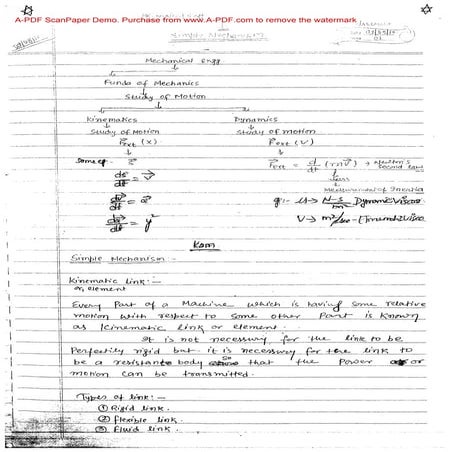 A-PDF ScanPaper Demo. Purchase from www.A-PDF.com to remove the watermark
Simple Mechanism
Mechanical Engg
Funda of Mechanics
Study of Motion
Kinematics Dynamics
Study of Motion Study of motion
F⃗ext (X) F⃗ext (V)
some eq. F⃗ext = d/dt (mv⃗) → Newton's Second Law
ds⃗/dt = v⃗ mass
Measurement of Inertia
dv⃗/dt = a⃗ μ → N-s/m² Dynamic Visco
ν → m²/sec
Kom
Simple Mechanism :-
Kinematic link :-
or, element
Every Part of a Machine which is having some relative
motion with respect to some other Part is Known
as Kinematic link or element.
It is not necessary for the link to be
Perfectily rigid but it is necessary for the link to
be a resistante body so that the Power or
motion can be transmitted.
Types of link :-
① Rigid link.
② flexible link.
③ Fluid link.